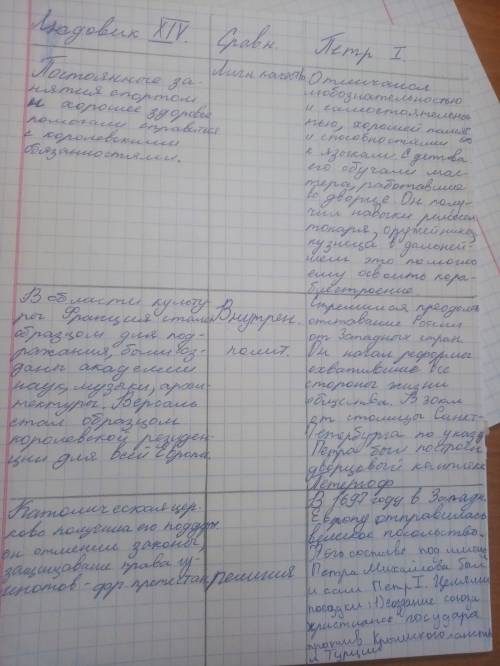 Людовик XIV.
Сравн.
Петр I.
Постоянного за-
нятия спортом
и хорошее здоровье
помогали справиться
с королевскими
обязанностями.
Личн. качества
Отличался
любознательностью
и самостоятельнос-
тью, хорошей памятью
и способностями
к языкам. С детства
его обучали мас-
тера, работавшие
во дворце. Он полу-
чил навыки ремесел
токаря, оружейника,
кузнеца, в дальней-
шем это помогло
ему освоить кора-
блестроение
В области культу
ры Франция стала
образцом для под-
ражания, были соз-
даны академии
наук, музыки, архи-
тектуры. Версаль
стал образцом
королевской резиден-
ции для всей Европы.
Внутрен.
полит.
стремился преодолеть
отставание России
от Западных стран.
Он начал реформы
охватившие все
стороны жизни
общества. В
от столицы Санкт-
Петербурга по указу
Петра был построен
дворцовый комплекс
Петергоф
Католическая цер-
ковь получила его поддерж
он отменил законы,
защищавшие права гу-
генотов - фр. протестан
религия
В 1697 году в Западн.
Европу отправилась
великое посольство.
В его составе под именем
Петра Михайлова был
и сам Петр I. Целями
поездки: 1) создание союза
христианс. государств
против Крымского ханства
и Турции